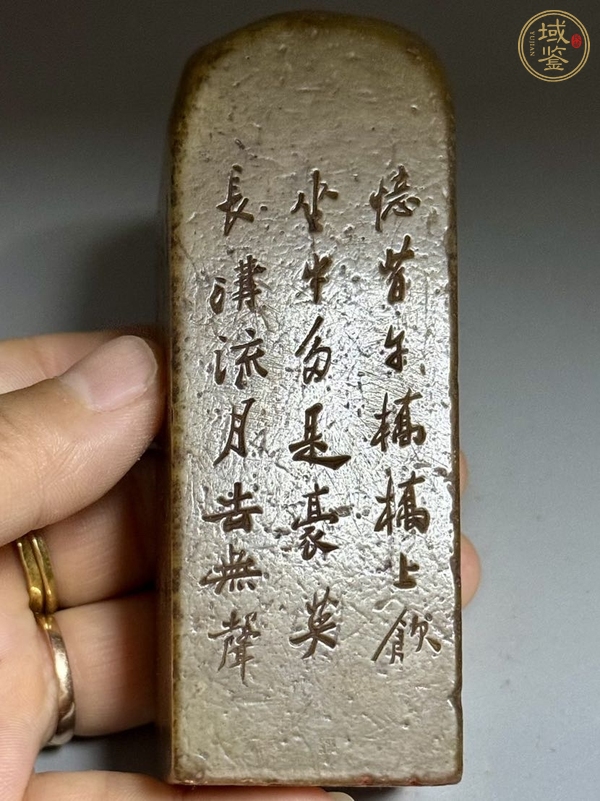 憶昔午橋橋上飲
坐中多是豪英
長溝流月去無聲
域鉴
YUJIAN